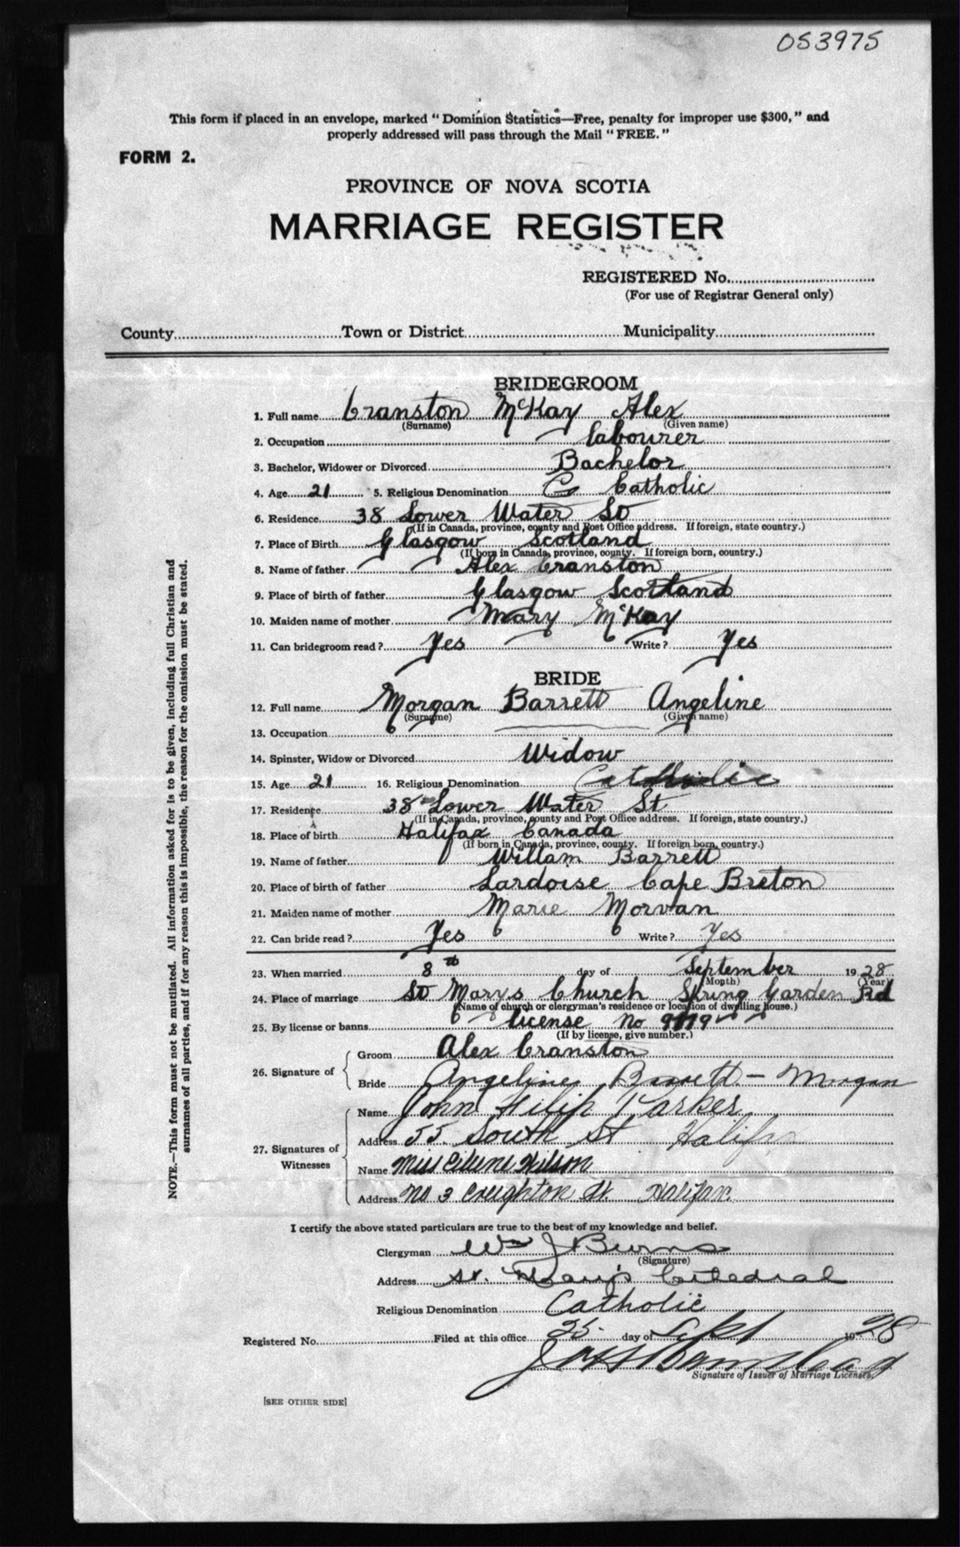 053975
This form if placed in an envelope, marked "Dominion Statistics—Free, penalty for improper use $300," and
properly addressed will pass through the Mail "FREE."
FORM 2.
PROVINCE OF NOVA SCOTIA
MARRIAGE REGISTER
REGISTERED No.
(For use of Registrar General only)
County Town or District Municipality
BRIDEGROOM
1. Full name Cranston McKay Alex
(Surname) (Given name)
2. Occupation labourer
3. Bachelor, Widower or Divorced Bachelor
4. Age 21 5. Religious Denomination C Catholic
6. Residence 38 Lower Water St
(If in Canada, province, county and Post Office address. If foreign, state country.)
7. Place of Birth Glasgow Scotland
(If born in Canada, province, county. If foreign born, country.)
8. Name of father Alex Cranston
9. Place of birth of father Glasgow Scotland
10. Maiden name of mother Mary McKay
11. Can bridegroom read? Yes Write? Yes
BRIDE
12. Full name Morgan Barrett Angeline
(Surname) (Given name)
13. Occupation
14. Spinster, Widow or Divorced Widow
15. Age 21 16. Religious Denomination Catholic
17. Residence 38 Lower Water St
(If in Canada, province, county and Post Office address. If foreign, state country.)
18. Place of birth Halifax Canada
(If born in Canada, province, county. If foreign born, country.)
19. Name of father Willam Barrett
20. Place of birth of father Lardoise Cape Breton
21. Maiden name of mother Marie Morvan
22. Can bride read? Yes Write? Yes
23. When married 8th day of September 1928
(Month) (Year)
24. Place of marriage St Marys Church Spring Garden Rd
(Name of church or clergyman's residence or location of dwelling house.)
25. By license or banns license No
(If by license, give number.)
26. Signature of
Groom Alex Cranston
Bride Angeline Barrett - Morgan
27. Signatures of Witnesses
Name John Filip Parker
Address 55 South St Halifax
Name Miss Eilene Wilson
Address No 3 Creighton St. Halifax.
I certify the above stated particulars are true to the best of my knowledge and belief.
Clergyman Wm J Burns
(Signature)
Address St. Mary's Cathedral
Religious Denomination Catholic
Registered No. Filed at this office 25 day of Sept 1928
Signature of Issuer of Marriage Licenses.
[SEE OTHER SIDE]
NOTE.—This form must not be mutilated. All information asked for is to be given, including full Christian and
surnames of all parties, and if for any reason this is impossible, the reason for the omission must be stated.